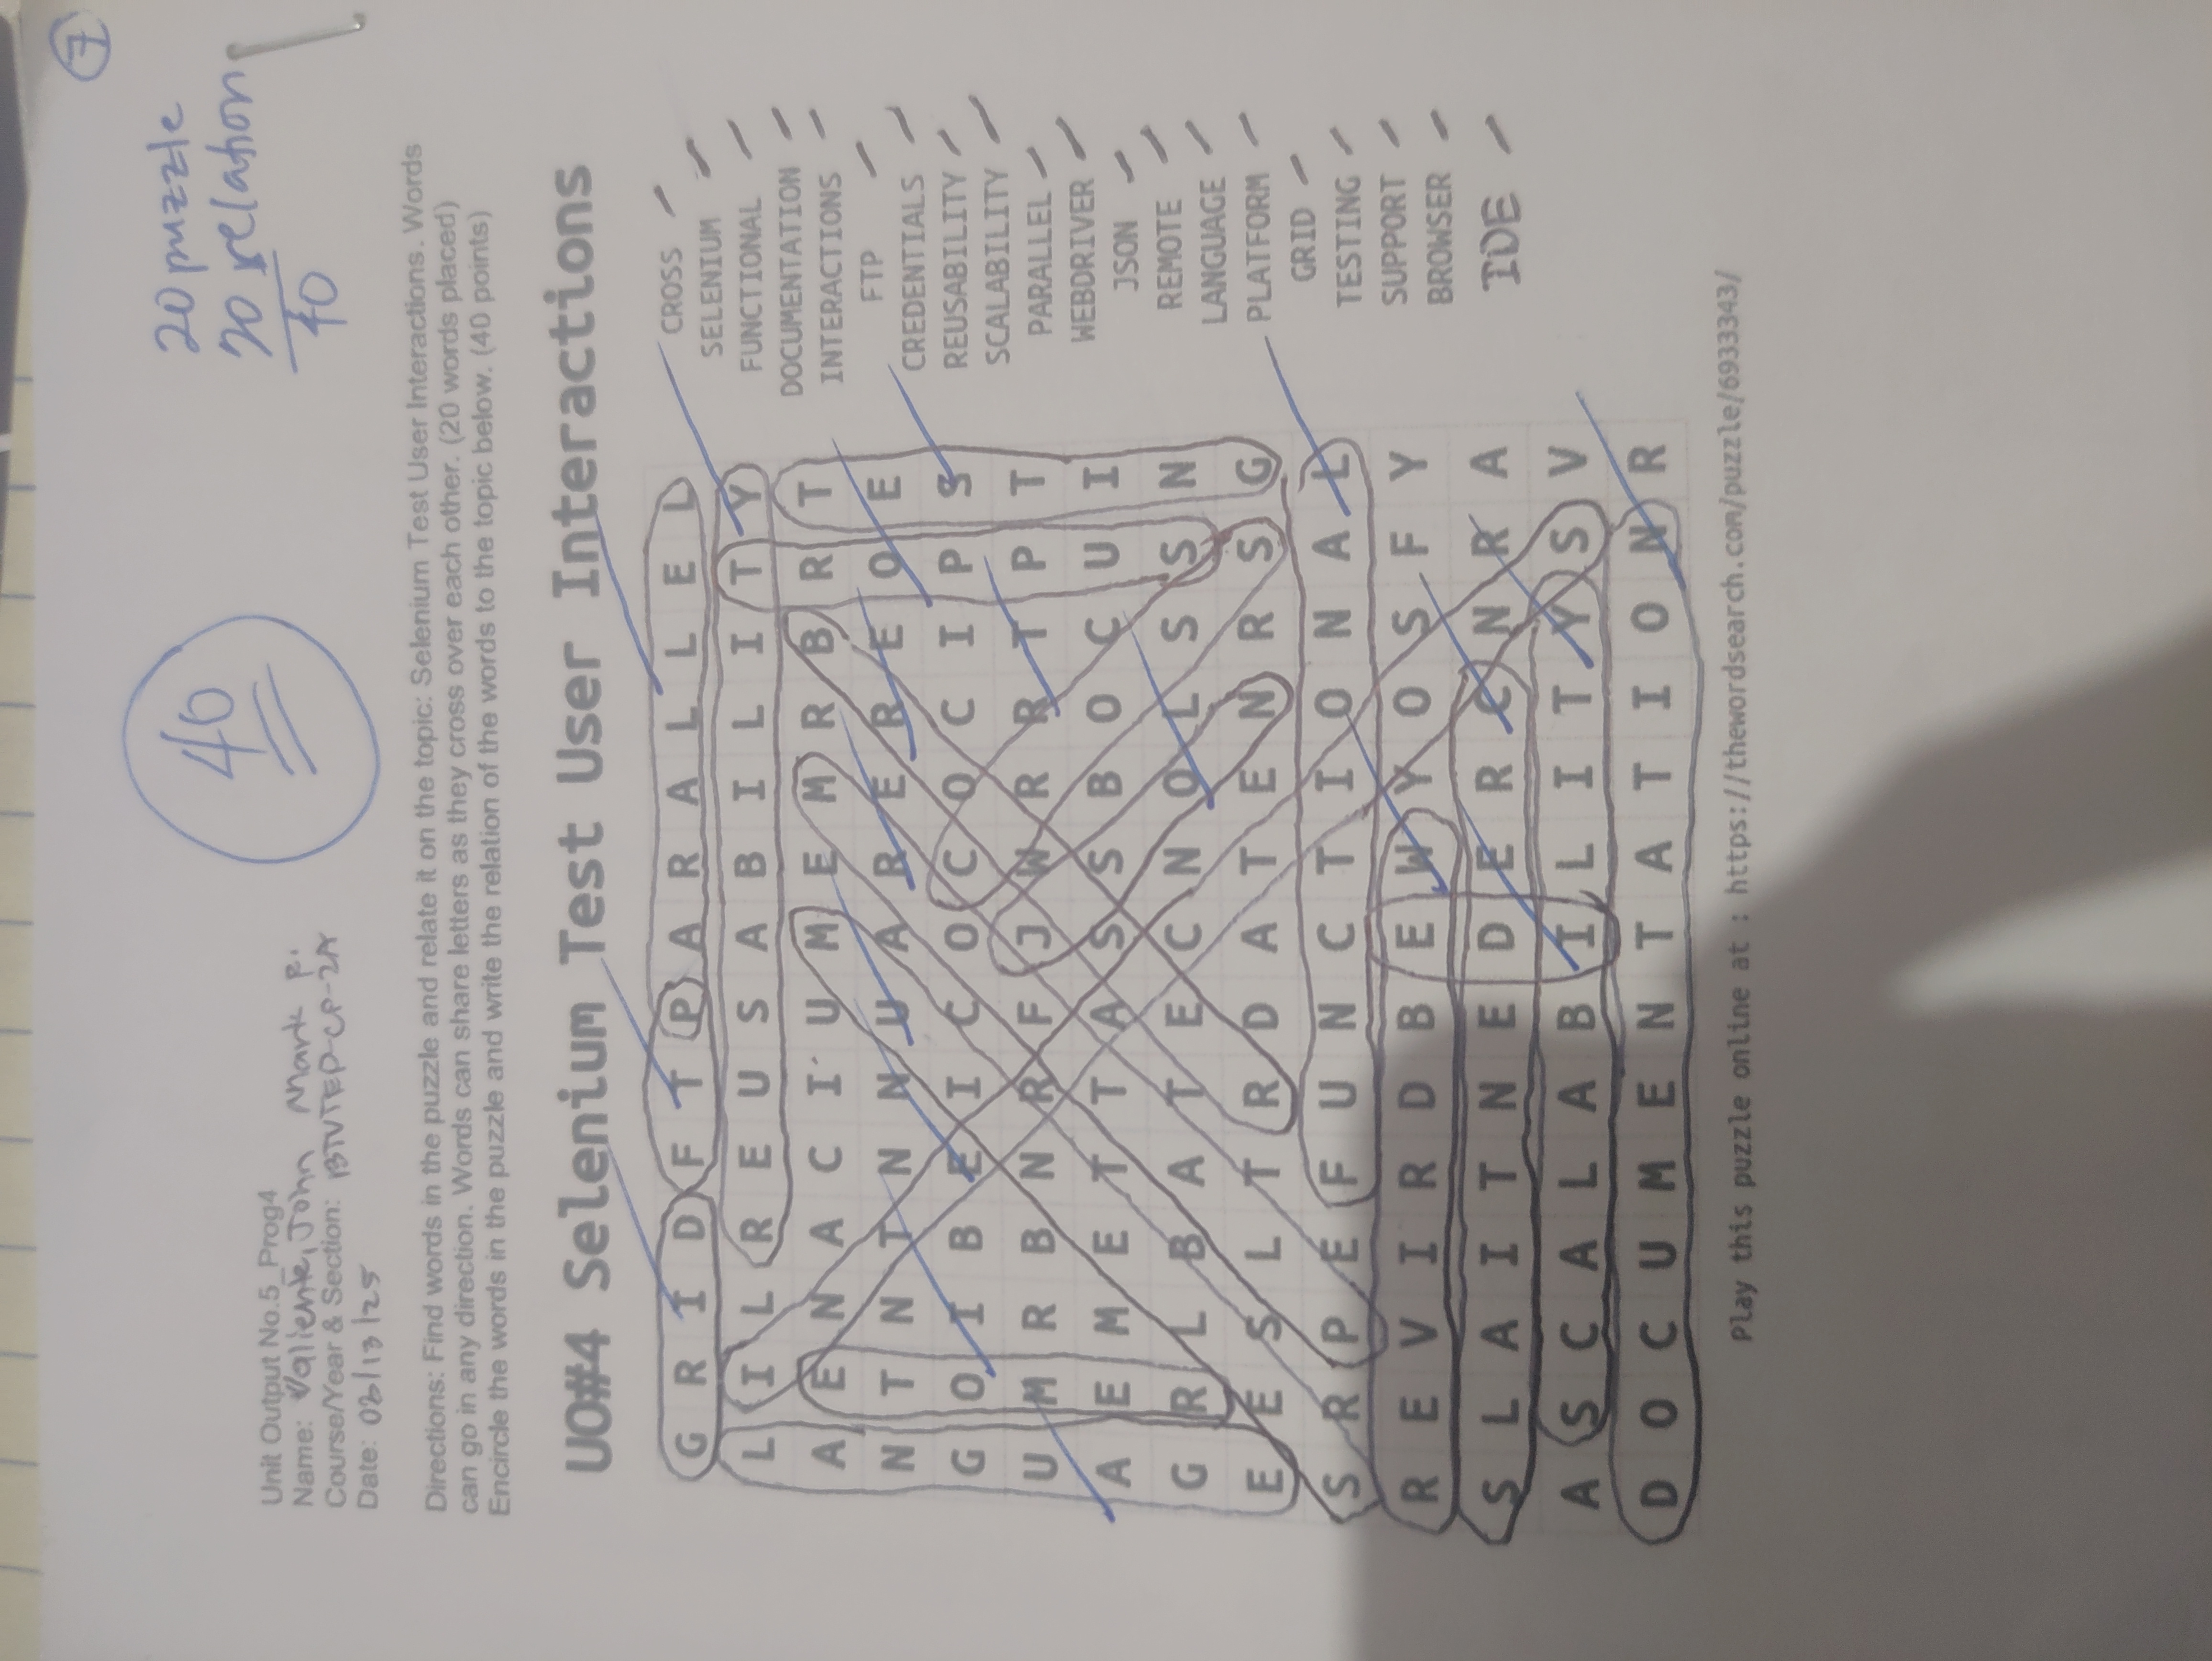 7
40
20 puzzle
20 relation
40
Unit Output No.5_Prog4
Name: Valiente, John Mark F.
Course/Year & Section: BTVTED-CP-2A
Date: 03/13/25
Directions: Find words in the puzzle and relate it on the topic: Selenium Test User Interactions. Words
can go in any direction. Words can share letters as they cross over each other. (20 words placed)
Encircle the words in the puzzle and write the relation of the words to the topic below. (40 points)
UO#4 Selenium Test User Interactions
G R I D F T P A R A L L E L
L I L R E U S A B I L I T Y
A E N A C I U M E M R B R T
N T N T N N U A R E R E O E
G O I B E I C O C O C I P S
U M R B N R F J W R R T P T
A E M E T T A S S B O C U I
G R L B A T E C N O L S S N
E E S L T R D A T E N R S G
S R P E F U N C T I O N A L
R E V I R D B E W Y O S F Y
S L A I T N E D E R C N R A
A S C A L A B I L I T Y S V
D O C U M E N T A T I O N R
CROSS
SELENIUM
FUNCTIONAL
DOCUMENTATION
INTERACTIONS
FTP
CREDENTIALS
REUSABILITY
SCALABILITY
PARALLEL
WEBDRIVER
JSON
REMOTE
LANGUAGE
PLATFORM
GRID
TESTING
SUPPORT
BROWSER
IDE
Play this puzzle online at : https://thewordsearch.com/puzzle/6933343/